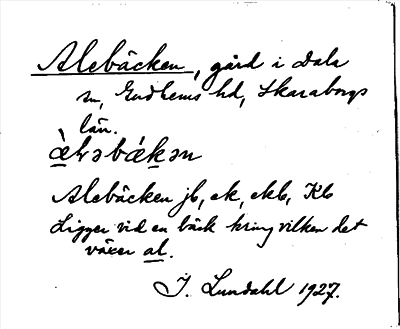 Alebäcken, gård i Dala
sn, Gudhems hd, Skaraborgs
län.
àləbákən
Alebäcken jb, ek, ekb, Kb
Ligger vid en bäck kring vilken det
växer al.
I. Lundahl 1927.